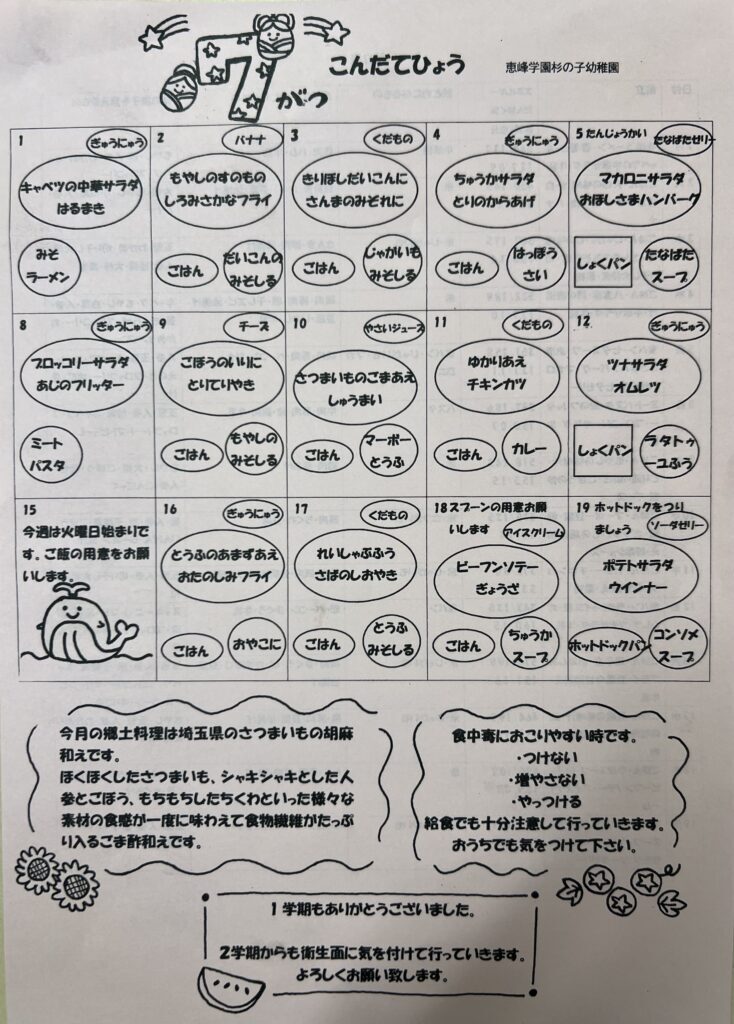 7
がつ
こんだてひょう
恵峰学園杉の子幼稚園
1
ぎゅうにゅう
キャベツの中華サラダ
はるまき
みそ
ラーメン
2
バナナ
もやしのすのもの
しろみさかなフライ
ごはん
だいこんの
みそしる
3
くだもの
きりぼしだいこんに
さんまのみぞれに
ごはん
じゃがいも
みそしる
4
ぎゅうにゅう
ちゅうかサラダ
とりのからあげ
ごはん
はっぽう
さい
5 たんじょうかい
たなばたゼリー
マカロニサラダ
おほしさまハンバーグ
しょくパン
たなばた
スープ
8
ぎゅうにゅう
ブロッコリーサラダ
あじのフリッター
ミート
パスタ
9
チーズ
ごぼうのいりに
とりてりやき
ごはん
もやしの
みそしる
10
やさいジュース
さつまいものごまあえ
しゅうまい
ごはん
マーボー
とうふ
11
くだもの
ゆかりあえ
チキンカツ
ごはん
カレー
12
ぎゅうにゅう
ツナサラダ
オムレツ
しょくパン
ラタトゥ
ーユふう
15
今週は火曜日始まりで
す。ご飯の用意をお願
いします。
16
ぎゅうにゅう
とうふのあまずあえ
おたのしみフライ
ごはん
おやこに
17
くだもの
れいしゃぶふう
さばのしおやき
ごはん
とうふ
みそしる
18 スプーンの用意お願
いします
アイスクリーム
ビーフンソテー
ぎょうざ
ごはん
ちゅうか
スープ
19 ホットドックをつり
ましょう
ソーダゼリー
ポテトサラダ
ウインナー
ホットドックパン
コンソメ
スープ
今月の郷土料理は埼玉県のさつまいもの胡麻
和えです。
ほくほくしたさつまいも、シャキシャキとした人
参とごぼう、もちもちしたちくわといった様々な
素材の食感が一度に味わえて食物繊維がたっぷ
り入るごま酢和えです。
食中毒におこりやすい時です。
・つけない
・増やさない
・やっつける
給食でも十分注意して行っていきます。
おうちでも気をつけて下さい。
1学期もありがとうございました。
2学期からも衛生面に気を付けて行っていきます。
よろしくお願い致します。